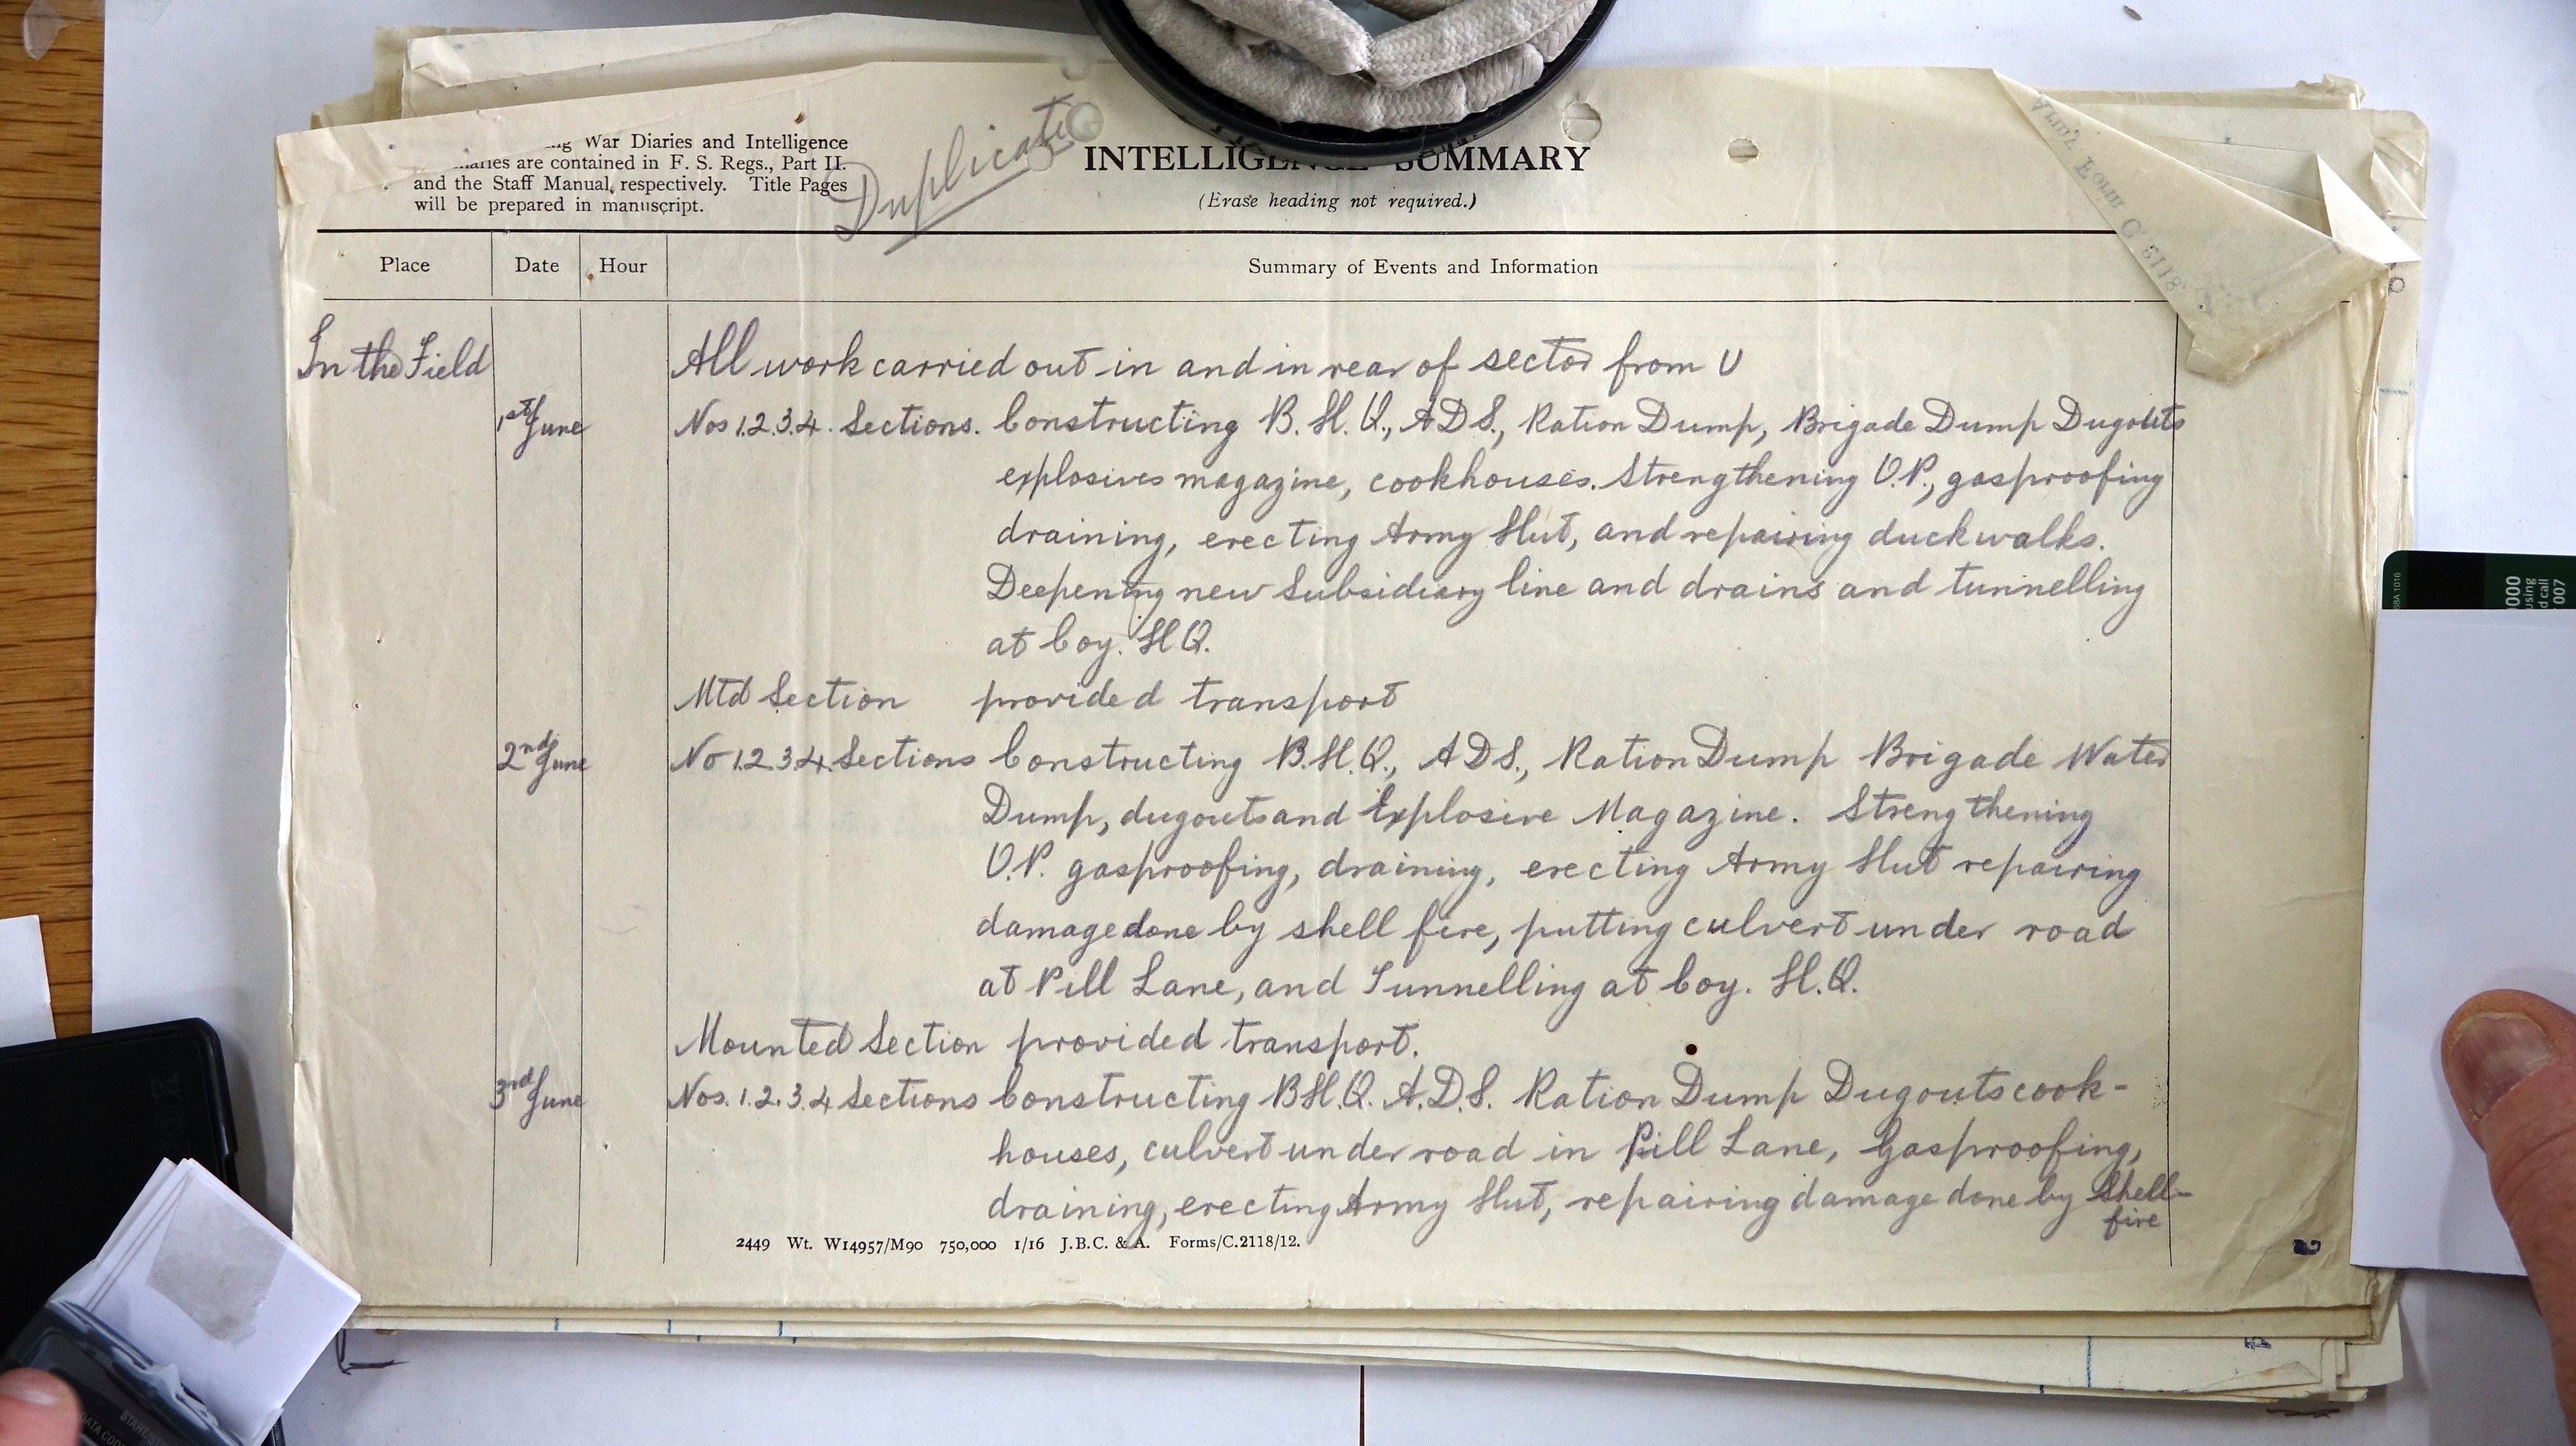 War Diaries and Intelligence
are contained in F. S. Regs., Part II.
and the Staff Manual, respectively. Title Pages
will be prepared in manuscript.
Duplicate
INTELLIGENCE SUMMARY
(Erase heading not required.)
Army Form C. 2118.
Place Date Hour Summary of Events and Information
In the Field All work carried out in and in rear of sector from U
1st June Nos 1.2.3.4. Sections. Constructing B.H.Q., ADS., Ration Dump, Brigade Dump Dugouts
explosives magazine, cookhouses. Strengthening O.P., gasproofing
draining, erecting Army Hut, and repairing duckwalks.
Deepening new Subsidiary line and drains and tunnelling
at Coy. HQ.
Mtd Section provided transport
2nd June No 1.2.3.4. Sections Constructing B.H.Q., ADS., Ration Dump Brigade Water
Dump, dugouts and Explosive Magazine. Strengthening
O.P. gasproofing, draining, erecting Army Hut repairing
damage done by shell fire, putting culvert under road
at Pill Lane, and Tunnelling at Coy. H.Q.
Mounted Section provided transport.
3rd June Nos. 1.2.3.4 Sections Constructing BH.Q. A.D.S. Ration Dump Dugouts cook-
houses, culvert under road in Pill Lane, Gasproofing,
draining, erecting Army Hut, repairing damage done by Shell-
fire
2449 Wt. W14957/M90 750,000 1/16 J.B.C. & A. Forms/C.2118/12.
000
using
d call
007